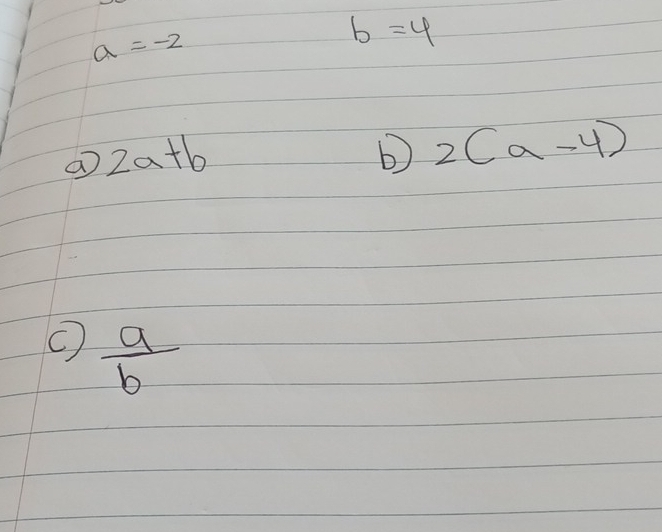 a = -2 b = 4
a) 2a+b b) 2(a-4)
c) a/b